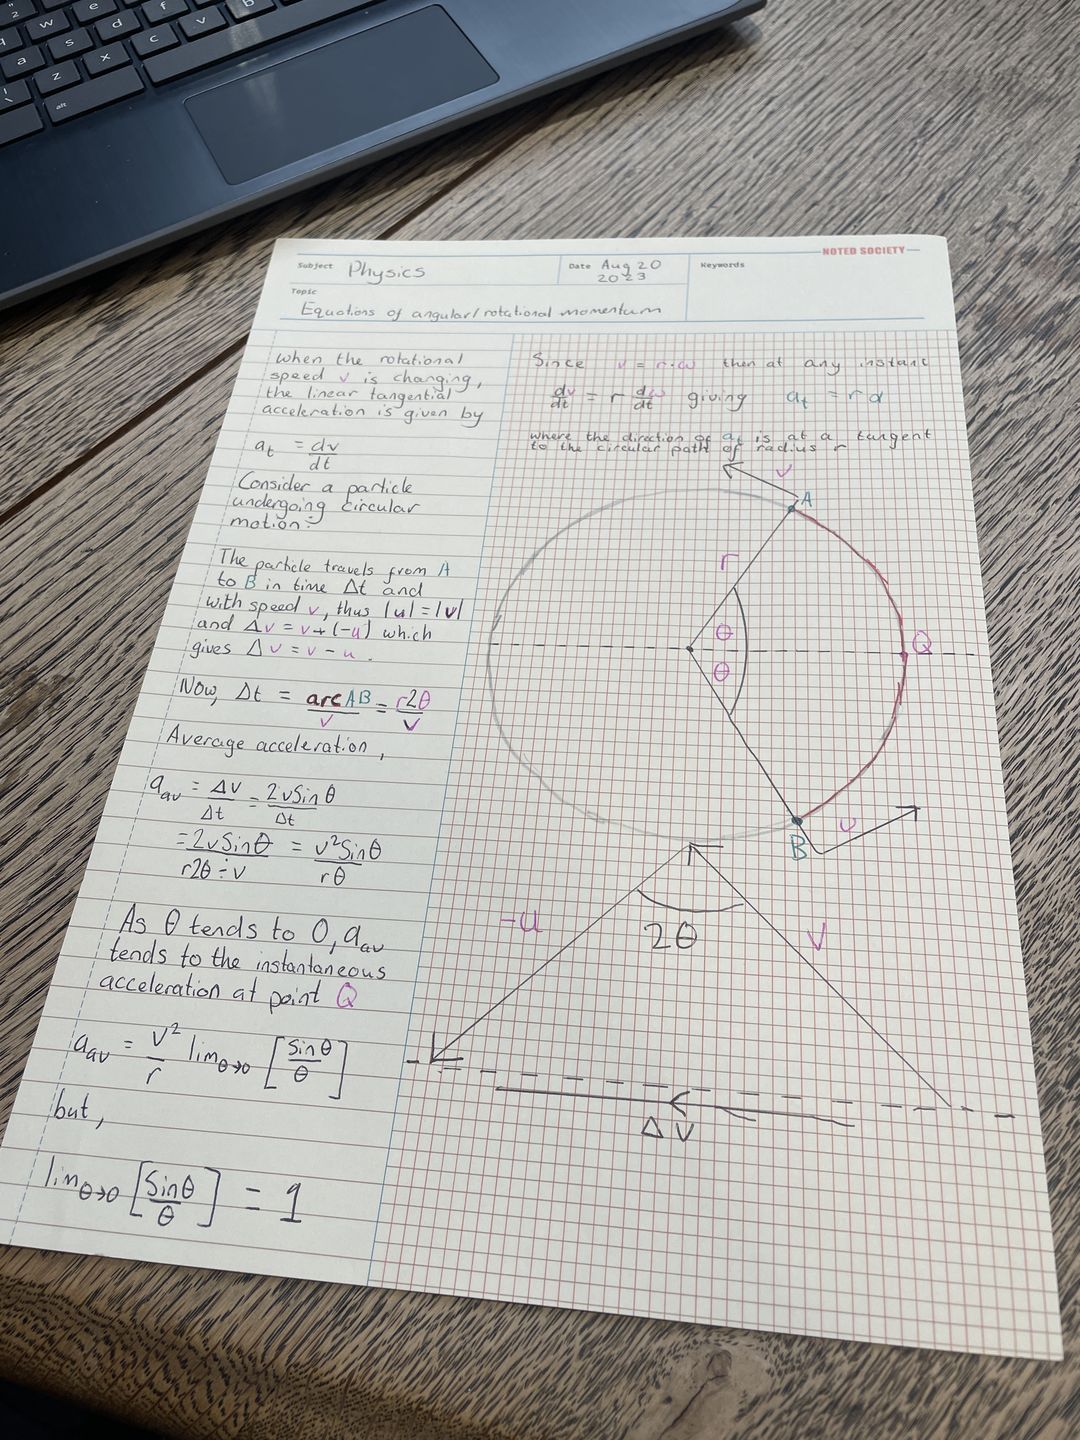 NOTED SOCIETY
Subject Physics
Date Aug 20
2023
Keywords
Topic
Equations of angular/rotational momentum
when the rotational
speed v is changing,
the linear tangential
acceleration is given by
at = dv/dt
Consider a particle
undergoing circular
motion:
The particle travels from A
to B in time Δt and
with speed v, thus |u| = |v|
and Δv = v + (-u) which
gives Δv = v - u.
Now, Δt = arcAB/v = r2θ/v
Average acceleration,
aav = Δv/Δt = 2vSinθ/Δt
= 2vSinθ/r2θ÷v = v²Sinθ/rθ
As θ tends to 0, aav
tends to the instantaneous
acceleration at point Q
aav = v²/r limθ→0 [Sinθ/θ]
but,
limθ→0 [Sinθ/θ] = 1
Since v = r·ω then at any instant
dv/dt = r dω/dt giving at = rα
where the direction of at is at a tangent
to the circular path of radius r
v
A
r
θ
Q
θ
B
u
-u
2θ
V
ΔV